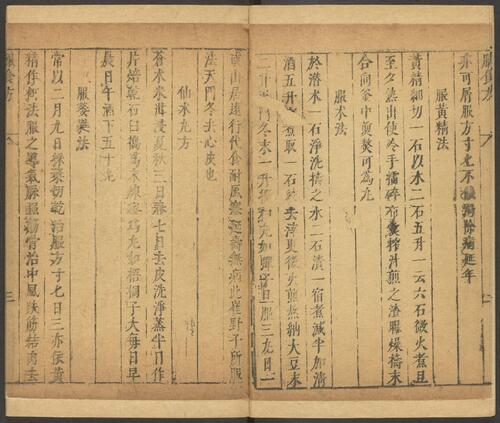 亦可屑服方寸匕不
服黃精法
黃精細切一石以水二石五升一云六石微火煮旦
至夕熟出使冷手擂碎布囊榨汁煎之渣曬燥擣末
合向釜中煎熬可為丸
服朮法
於潛朮一石淨洗擣之水二石漬一宿煮減半加清
酒五升煮取一石絞去滓更微火煎熬納大豆末
二升天門冬末一升和丸如彈子旦服三丸日一
或山居遠行代食耐風寒延壽無病此崔野子所服
法天門冬去心皮也
仙朮丸方
蒼朮米泔浸夏秋三日春七日去皮洗淨蒸半日作
片焙乾石臼搗為末煉蜜為丸如梧桐子大每日早
晨日午酒下五十丸
服萎蕤法
常以二月九日採葉切乾治服方寸匕日三亦依黃
精作餌法服之導氣脉強筋骨治中風跌筋結肉去